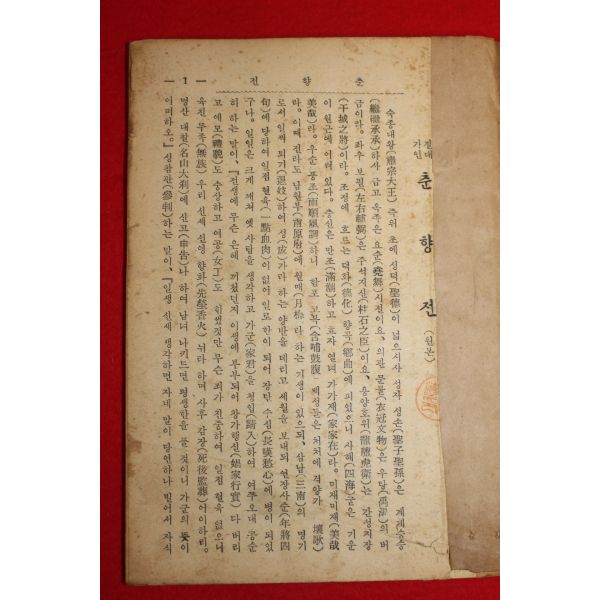 춘향전
— 1 —
절대
가인
춘향전
(원본)
숙종대왕(肅宗大王) 즉위 초에 성덕(聖德)이 넓으시사 성자 성손(聖子聖孫)은 계계승승
(繼繼承承)하사 금고 옥족은 요순(堯舜)시절이요, 의관 문물(衣冠文物)은 우탕(禹湯)의 버
금이라. 좌우 보필(左右輔弼)은 주석지신(柱石之臣)이요, 용양호위(龍驤虎衛)는 간성지장
(干城之將)이라. 조정에 흐르는 덕화(德化) 향곡(鄕曲)에 피었으니 사해(四海) 굳은 기운
이 원근에 어려 있다. 충신은 만조(滿朝)하고 효자 열녀 가가재(家家在)라. 미재미재(美哉
美哉)라. 우순 풍조(雨順風調)하니 함포 고복(含哺鼓腹) 백성들은 처처에 격양가 壤歌
라. 이때 전라도 남원부(南原府)에 월매(月梅)라 하는 기생이 있으되, 삼남(三南)의 명기
로서 일찍 퇴기(退妓)하여 성(成)가라 하는 양반을 데리고 세월을 보내되 연장사순(年將四
旬)에 당하여 일점 혈육(一點血肉)이 없어 일로 한이 되어 장탄 수심(長嘆愁心)에 병이 되었
구나. 일일은 크게 깨쳐 옛 사람을 생각하고 가군(家君)을 청입(請入)하여 여쭈오대 공순
히 하는 말이, 『전생에 무슨 은혜 끼쳤던지 이생에 부부되어 창가행실(娼家行實) 다 버리
고 예모(禮貌)도 숭상하고 여공(女工)도 힘썼것만 무슨 죄가 진중하여 일점 혈육 없으니
육친 무족(無族) 우리 신세 선영 향화(先塋香火) 뉘라 하며 사후 감장(死後監葬) 어이하리.
명산 대찰(名山大刹)에 신고(申告)나 하여 남녀 나키드면 평생한을 풀 것이니 가군의 뜻이
어떠하오.』 성참판(參判)하는 말이, 『일생 신세 생각하면 자네 말이 당연하나 빌어서 자식